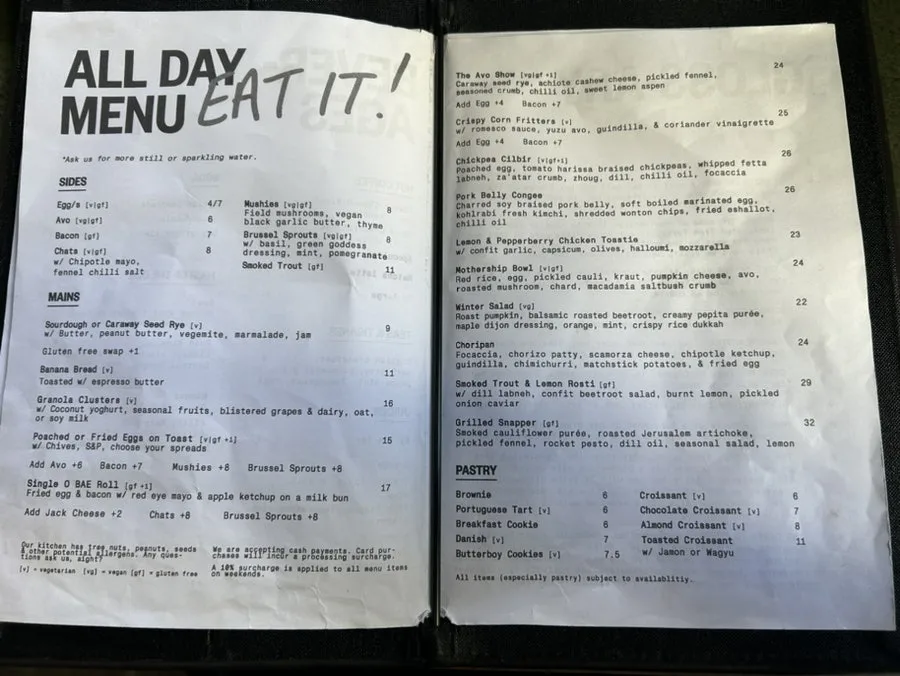 ALL DAY
MENU
EAT IT!
*Ask us for more still or sparkling water.
SIDES
Egg/s [v|gf] 4/7
Avo [v|gf] 6
Bacon [gf] 7
Chats [v|gf] 8
w/ Chipotle mayo,
fennel chilli salt
Mushies [vg|gf] 8
Field mushrooms, vegan
black garlic butter, thyme
Brussel Sprouts [vg|gf] 8
w/ basil, green goddess
dressing, mint, pomegranate
Smoked Trout [gf] 11
MAINS
Sourdough or Caraway Seed Rye [v] 9
w/ Butter, peanut butter, vegemite, marmalade, jam
Gluten free swap +1
Banana Bread [v] 11
Toasted w/ espresso butter
Granola Clusters [v] 16
w/ Coconut yoghurt, seasonal fruits, blistered grapes & dairy, oat,
or soy milk
Poached or Fried Eggs on Toast [v|gf +1] 15
w/ Chives, S&P, choose your spreads
Add Avo +6 Bacon +7 Mushies +8 Brussel Sprouts +8
Single O BAE Roll [gf +1] 17
Fried egg & bacon w/ red eye mayo & apple ketchup on a milk bun
Add Jack Cheese +2 Chats +8 Brussel Sprouts +8
Our kitchen has tree nuts, peanuts, seeds
& other potential allergens. Any ques-
tions ask us, aight?
[v] = vegetarian [vg] = vegan [gf] = gluten free
We are accepting cash payments. Card pur-
chases will incur a processing surcharge.
A 10% surcharge is applied to all menu items
on weekends.
The Avo Show [vg|gf +1] 24
Caraway seed rye, achiote cashew cheese, pickled fennel,
seasoned crumb, chilli oil, sweet lemon aspen
Add Egg +4 Bacon +7
Crispy Corn Fritters [v] 25
w/ romesco sauce, yuzu avo, guindilla, & coriander vinaigrette
Add Egg +4 Bacon +7
Chickpea Cilbir [v|gf+1] 26
Poached egg, tomato harissa braised chickpeas, whipped fetta
labneh, za'atar crumb, zhoug, dill, chilli oil, focaccia
Pork Belly Congee 26
Charred soy braised pork belly, soft boiled marinated egg,
kohlrabi fresh kimchi, shredded wonton chips, fried eshallot,
chilli oil
Lemon & Pepperberry Chicken Toastie 23
w/ confit garlic, capsicum, olives, halloumi, mozzarella
Mothership Bowl [v|gf] 24
Red rice, egg, pickled cauli, kraut, pumpkin cheese, avo,
roasted mushroom, chard, macadamia saltbush crumb
Winter Salad [vg] 22
Roast pumpkin, balsamic roasted beetroot, creamy pepita purée,
maple dijon dressing, orange, mint, crispy rice dukkah
Choripan 24
Focaccia, chorizo patty, scamorza cheese, chipotle ketchup,
guindilla, chimichurri, matchstick potatoes, & fried egg
Smoked Trout & Lemon Rosti [gf] 29
w/ dill labneh, confit beetroot salad, burnt lemon, pickled
onion caviar
Grilled Snapper [gf] 32
Smoked cauliflower purée, roasted Jerusalem artichoke,
pickled fennel, rocket pesto, dill oil, seasonal salad, lemon
PASTRY
Brownie 6
Portuguese Tart [v] 6
Breakfast Cookie 6
Danish [v] 7
Butterboy Cookies [v] 7.5
Croissant [v] 6
Chocolate Croissant [v] 7
Almond Croissant [v] 8
Toasted Croissant 11
w/ Jamon or Wagyu
All items (especially pastry) subject to availablitiy.